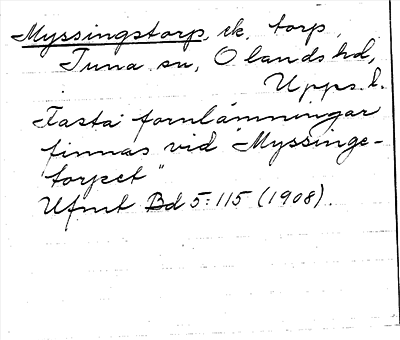 Myssingstorp, ik, torp,
Tuna sn, Olands hd,
Upps. l.
Fasta fornlämningar
finnas vid "Myssinge-
torpet"
Ufmt Bd 5:115 (1908).